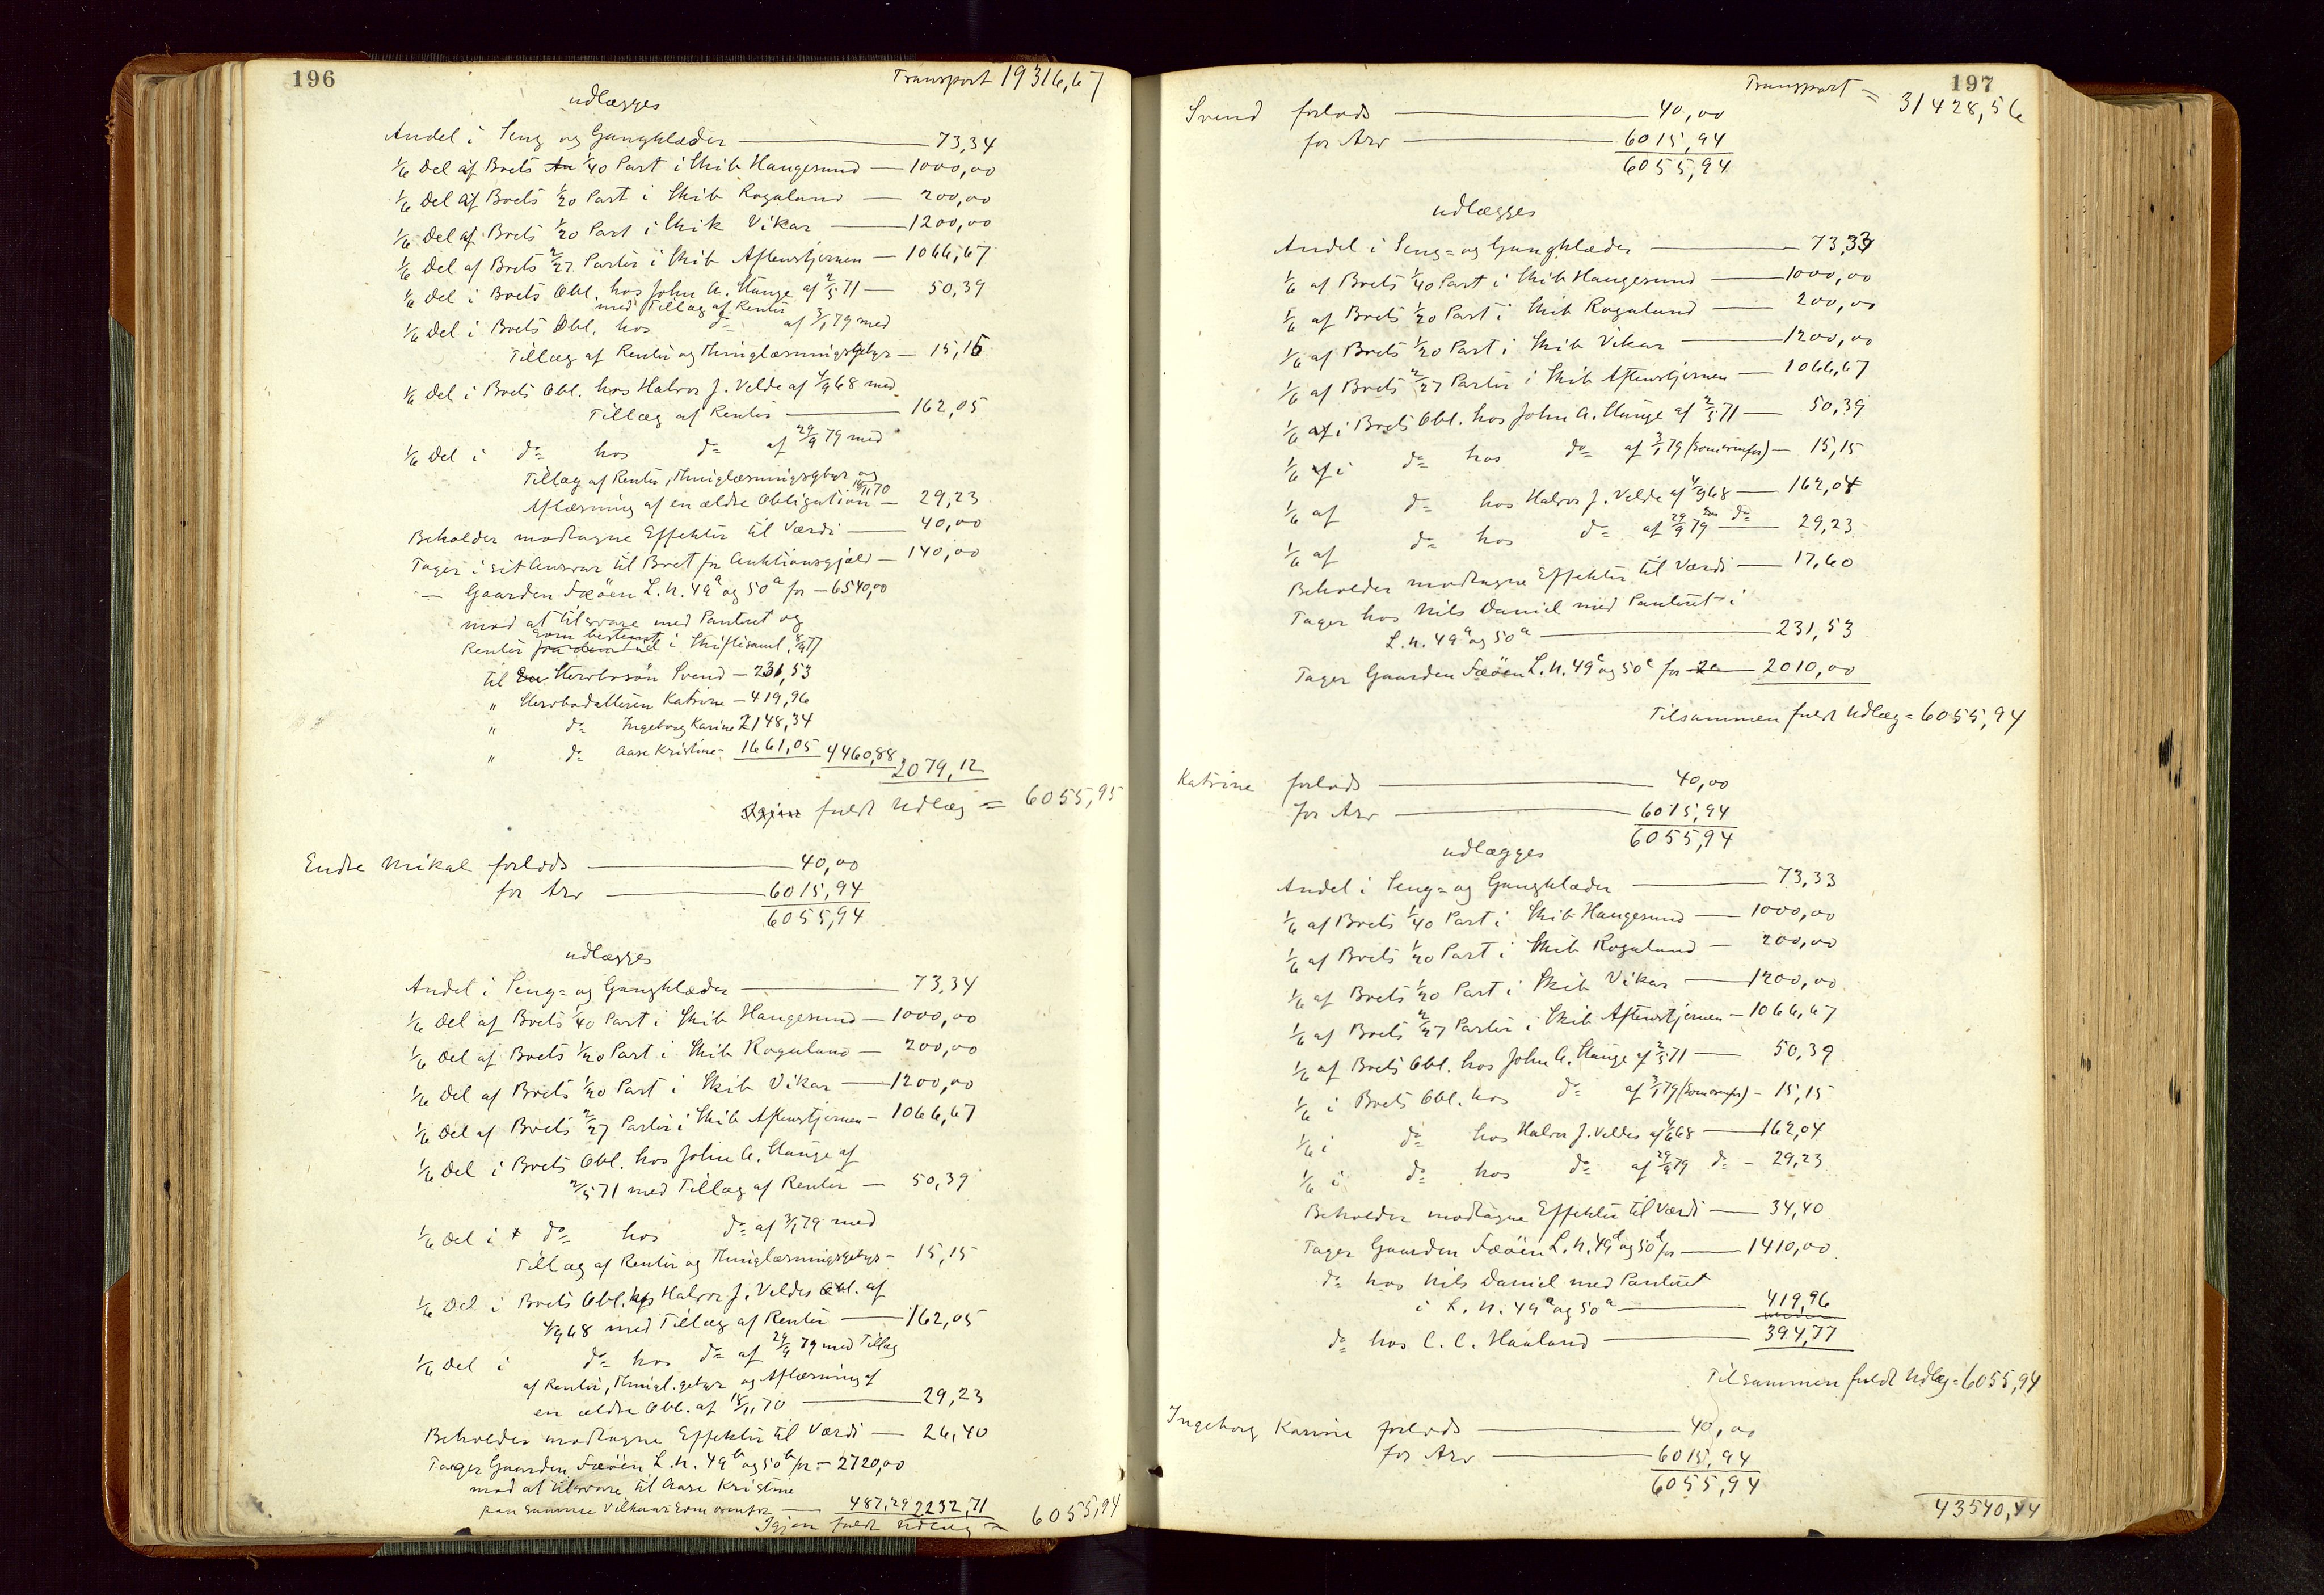 196
Transport 19316,67
udlægges
Andel i Seng og Gangklæder — 73,34
1/6 Del af Boets 1/40 Part i Skib Haugesund — 1000,00
1/6 Del af Boets 1/20 Part i Skib Rogaland — 200,00
1/6 Del af Boets 1/20 Part i Skib Vikar — 1200,00
1/6 Del af Boets 2/27 Parter i Skib Aftenstjernen — 1066,67
1/6 Del i Boets Obl. hos John A. Hauge af 2/5 71 — 50,39
med Tillæg af Renter
1/6 Del i Boets Obl. hos do af 3/1 79 med
Tillæg af Renter og Thinglæsningsgebyr — 15,15
1/6 Del i Boets Obl. hos Halvor J. Velde af 4/9 68 med
Tillæg af Renter — 162,05
1/6 Del i do hos do af 29/9 79 med
Tillæg af Renter, Thinglæsningsgebyr og
Aflæsning af en ældre Obligation 18/11 70 — 29,23
Beholder modtagne Effekter til Værdi — 40,00
Tager i sit Ansvar til Boet for Auktionsgjæld — 140,00
— Gaarden Fæøen L.N. 49a og 50a for — 6540,00
mod at tilsvare med Panteret og
Renter som bestemt i Skiftesaml. 8/9 77
til Stervbosøn Svend — 231,53
" Stervbodatteren Katrine — 419,96
" do Ingeborg Karine 2148,34
" do Aase Kristine — 1661,05 4460,88
2079,12
fuldt Udlæg = 6055,95
Endre Mikal forlods — 40,00
for Arv — 6015,94
6055,94
udlægges
Andel i Seng= og Gangklæder — 73,34
1/6 Del af Boets 1/40 Part i Skib Haugesund — 1000,00
1/6 Del af Boets 1/20 Part i Skib Rogaland — 200,00
1/6 Del af Boets 1/20 Part i Skib Vikar — 1200,00
1/6 Del af Boets 2/27 Parter i Skib Aftenstjernen — 1066,67
1/6 Del i Boets Obl. hos John A. Hauge af
2/5 71 med Tillæg af Renter — 50,39
1/6 Del i do hos do af 3/1 79 med
Tillæg af Renter og Thinglæsningsgebyr — 15,15
1/6 Del i Boets Obl. hos Halvor J. Veldes Obl. af
4/9 68 med Tillæg af Renter — 162,05
1/6 Del i do hos do af 29/9 79 med Tillæg
af Renter, Thingl. gebyr og Aflæsning af
en ældre Obl. af 18/11 70 — 29,23
Beholder modtagne Effekter til Værdi — 26,40
Tager Gaarden Fæøen L.N. 49b og 50b for — 2720,00
mod at tilsvare til Aase Kristine
paa samme Vilkaar som ovenfor — 487,29 2232,71
Igjen fuldt Udlæg = 6055,94
197
Transport = 31428,56
Svend forlods — 40,00
for Arv — 6015,94
6055,94
udlægges
Andel i Seng= og Gangklæder — 73,33
1/6 af Boets 1/40 Part i Skib Haugesund — 1000,00
1/6 af Boets 1/20 Part i Skib Rogaland — 200,00
1/6 af Boets 1/20 Part i Skib Vikar — 1200,00
1/6 af Boets 2/27 Parter i Skib Aftenstjernen — 1066,67
1/6 i Boets Obl. hos John A. Hauge af 2/5 71 — 50,39
1/6 i do hos do af 3/1 79 (som ovenfor) — 15,15
1/6 af do hos Halvor J. Velde af 4/9 68 — 162,04
1/6 af do hos do af 29/9 79 som do — 29,23
Beholder modtagne Effekter til Værdi — 17,60
Tager hos Nils Daniel med Panteret i
L.N. 49a og 50a — 231,53
Tager Gaarden Fæøen L.N. 49c og 50c for — 2010,00
Tilsammen fuldt Udlæg = 6055,94
Katrine forlods — 40,00
for Arv — 6015,94
6055,94
udlægges
Andel i Seng= og Gangklæder — 73,33
1/6 af Boets 1/40 Part i Skib Haugesund — 1000,00
1/6 af Boets 1/20 Part i Skib Rogaland — 200,00
1/6 af Boets 1/20 Part i Skib Vikar — 1200,00
1/6 af Boets 2/27 Parter i Skib Aftenstjernen — 1066,67
1/6 af Boets Obl. hos John A. Hauge af 2/5 71 — 50,39
1/6 i Boets Obl. hos do af 3/1 79 (som ovenfor) — 15,15
1/6 i do hos Halvor J. Veldes af 4/9 68 — 162,04
1/6 i do hos do af 29/9 79 do — 29,23
Beholder modtagne Effekter til Værdi — 34,40
Tager Gaarden Fæøen L.N. 49d og 50d for — 1410,00
do hos Nils Daniel med Panteret
i L.N. 49a og 50a — 419,96
do hos C. C. Haaland — 394,77
Tilsammen fuldt Udlæg = 6055,94
Ingeborg Karine forlods — 40,00
for Arv — 6015,94
6055,94
43540,44